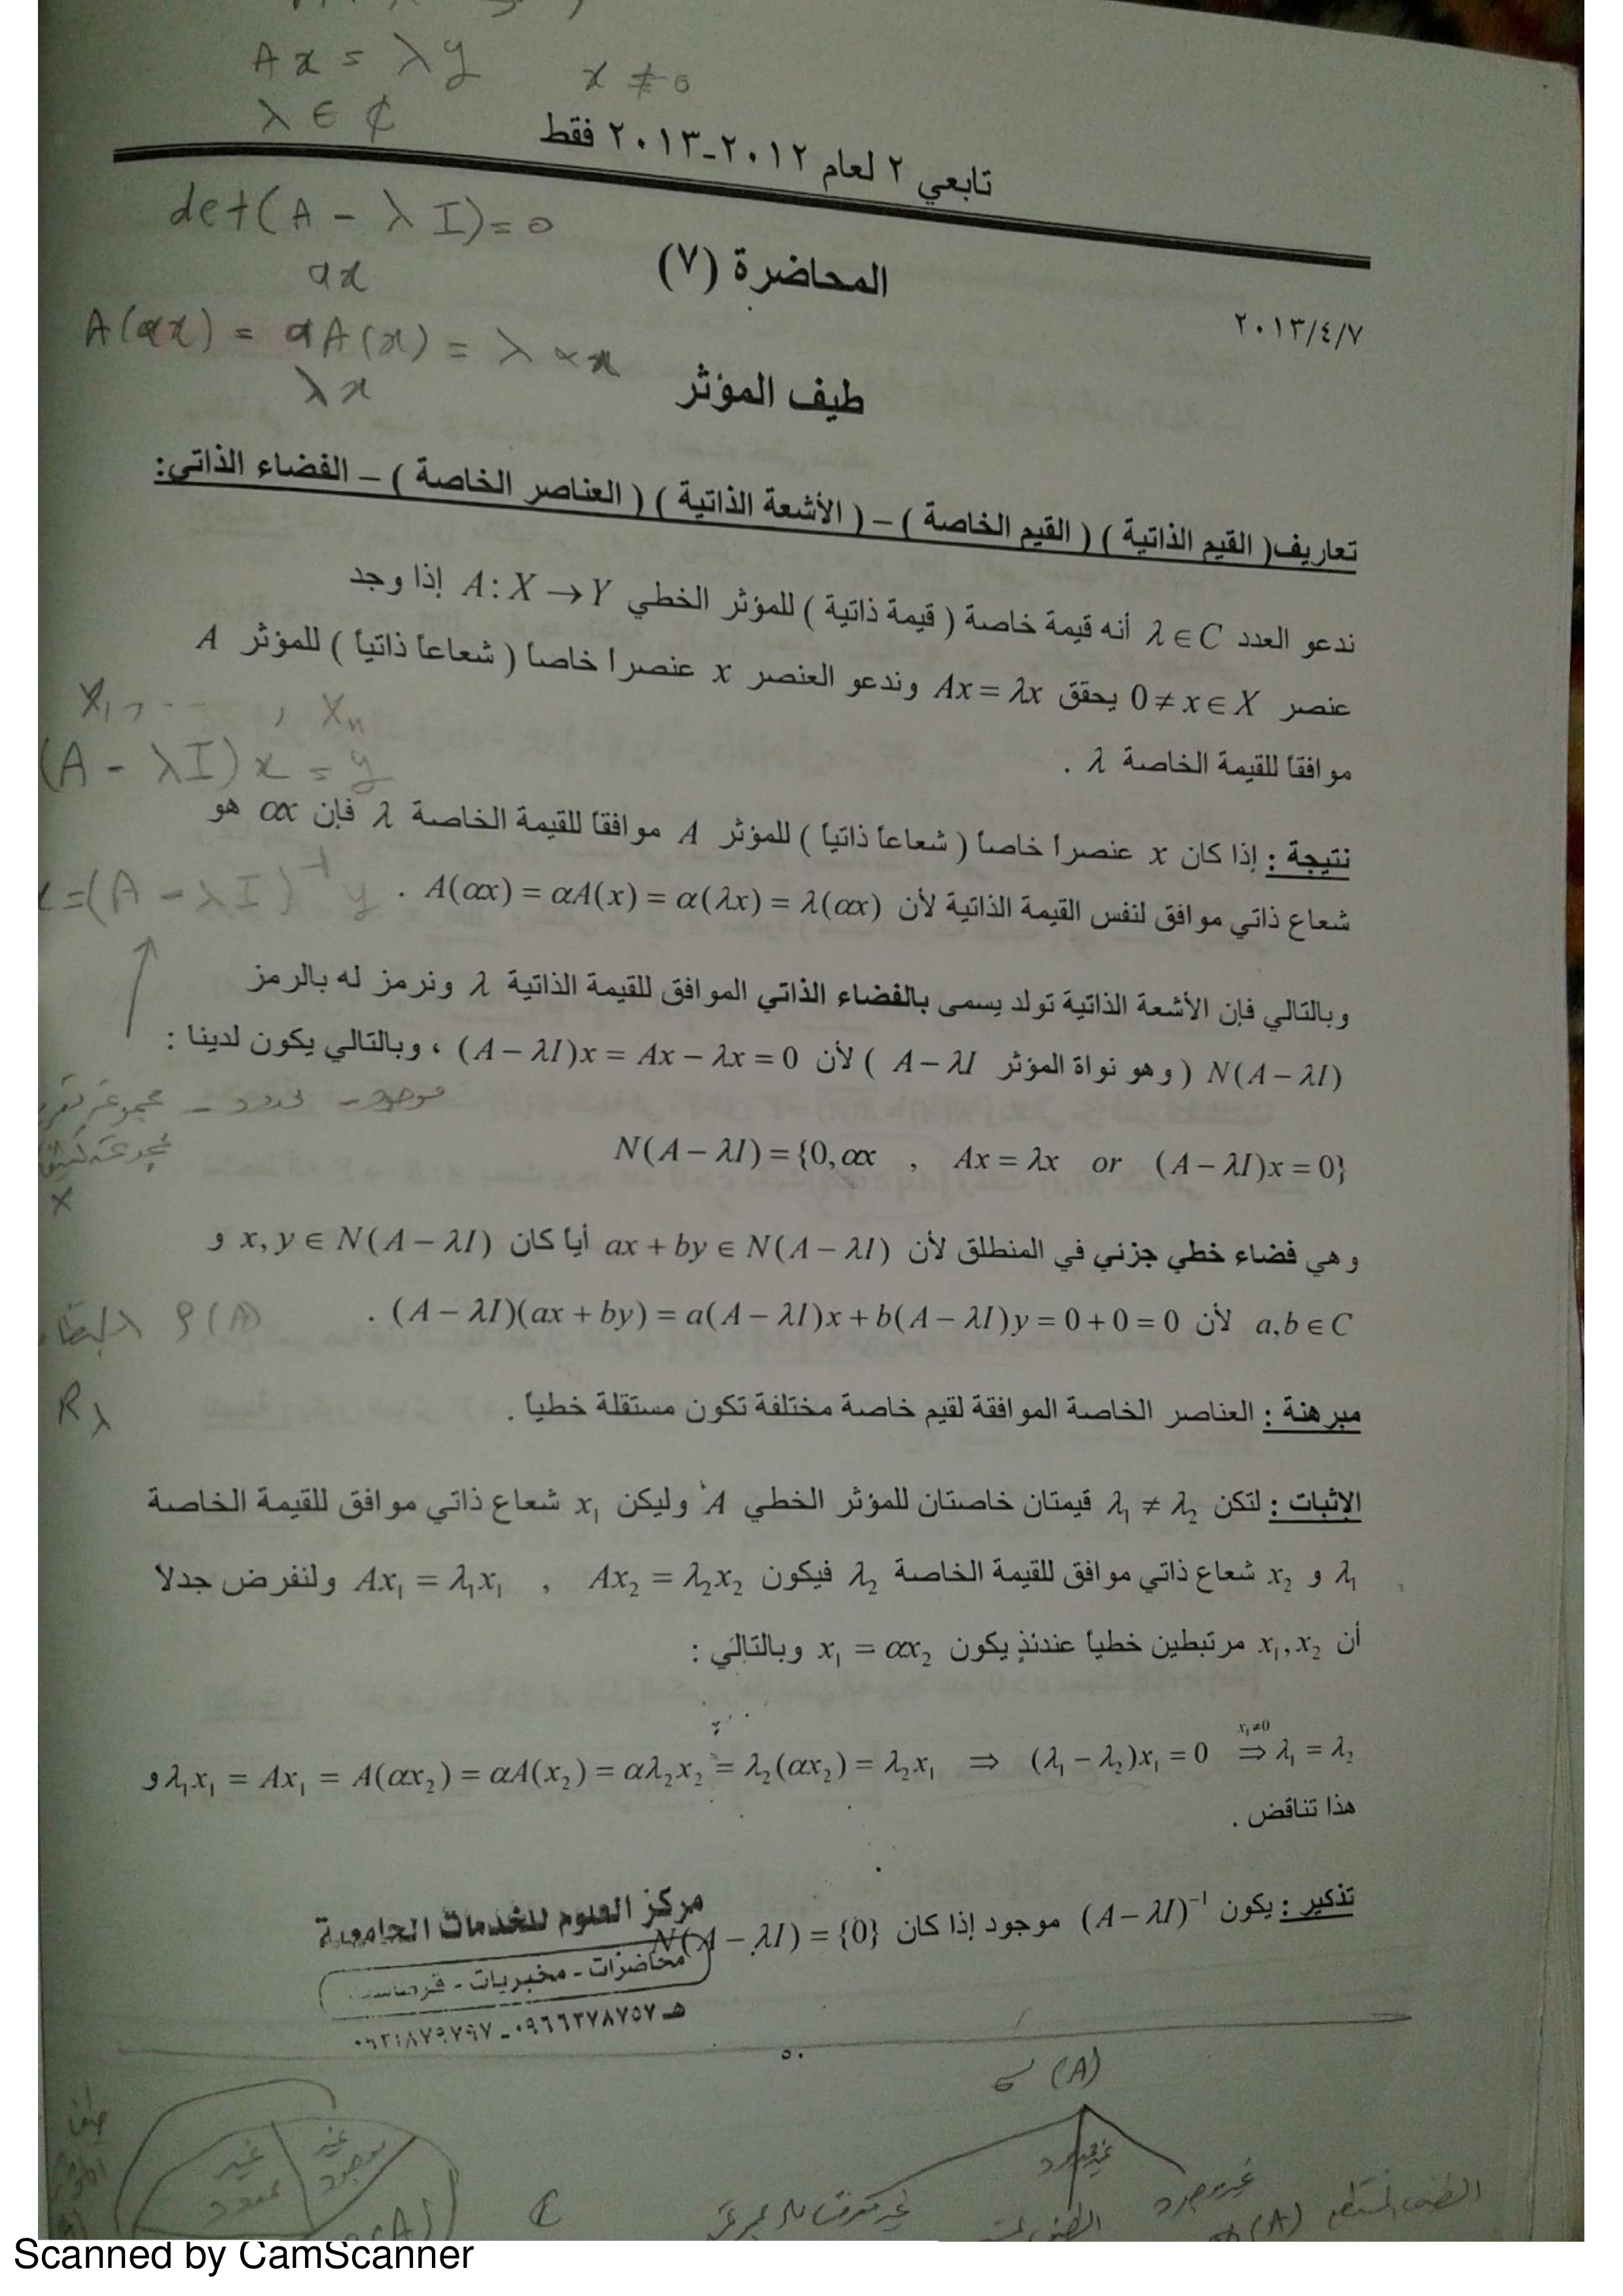 Ax = λy x ≠ 0
λ ∈ ₵
تابعي ٢ لعام ٢٠١٢-٢٠١٣ فقط
det(A - λI) = 0
المحاضرة (٧)
αx
٢٠١٣/٤/٧
A(αx) = αA(x) = λαx
λx
طيف المؤثر
تعاريف( القيم الذاتية ) ( القيم الخاصة ) – ( الأشعة الذاتية ) ( العناصر الخاصة ) – الفضاء الذاتي:
ندعو العدد λ∈C أنه قيمة خاصة ( قيمة ذاتية ) للمؤثر الخطي A: X → Y إذا وجد
عنصر 0 ≠ x ∈ X يحقق Ax = λx وندعو العنصر x عنصرا خاصاً ( شعاعاً ذاتياً ) للمؤثر A
x₁, ... , xₙ
موافقاً للقيمة الخاصة λ .
(A - λI)x = y
نتيجة : إذا كان x عنصرا خاصاً ( شعاعاً ذاتياً ) للمؤثر A موافقاً للقيمة الخاصة λ فإن αx هو
شعاع ذاتي موافق لنفس القيمة الذاتية لأن A(αx) = αA(x) = α(λx) = λ(αx) .
=(A - λI)⁻¹ y
وبالتالي فإن الأشعة الذاتية تولد يسمى بالفضاء الذاتي الموافق للقيمة الذاتية λ ونرمز له بالرمز
N(A − λI) ( وهو نواة المؤثر A − λI ) لأن (A − λI)x = Ax − λx = 0 ، وبالتالي يكون لدينا :
موجود - محدود -
N(A − λI) = {0, αx , Ax = λx or (A − λI)x = 0}
X
وهي فضاء خطي جزئي في المنطلق لأن ax + by ∈ N(A − λI) أياً كان x, y ∈ N(A − λI) و
a,b ∈ C لأن (A − λI)(ax + by) = a(A − λI)x + b(A − λI)y = 0 + 0 = 0 .
ρ(A)
مبرهنة : العناصر الخاصة الموافقة لقيم خاصة مختلفة تكون مستقلة خطياً .
Rλ
الإثبات : لتكن λ₁ ≠ λ₂ قيمتان خاصتان للمؤثر الخطي A وليكن x₁ شعاع ذاتي موافق للقيمة الخاصة
λ₁ و x₂ شعاع ذاتي موافق للقيمة الخاصة λ₂ فيكون Ax₁ = λ₁x₁ , Ax₂ = λ₂x₂ ولنفرض جدلا
أن x₁, x₂ مرتبطين خطياً عندئذٍ يكون x₁ = αx₂ وبالتالي :
λ₁x₁ = Ax₁ = A(αx₂) = αA(x₂) = αλ₂x₂ = λ₂(αx₂) = λ₂x₁ ⇒ (λ₁ − λ₂)x₁ = 0 ⇒ (x₁≠0) λ₁ = λ₂ و
هذا تناقض .
تذكير : يكون (A − λI)⁻¹ موجود إذا كان N(A − λI) = {0}
مركز العلوم للخدمات الجامعية
محاضرات - مخبريات -
هـ ٠٩٦٦٢٧٨٧٥٧
٥٠
σ(A)
غير موجود
غير محدود
غير موجود
C